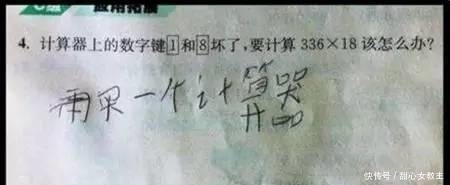 C组 应用拓展
4. 计算器上的数字键1和8坏了,要计算 336×18 该怎么办?
再买一个计算器
快传号 / 甜心女教主